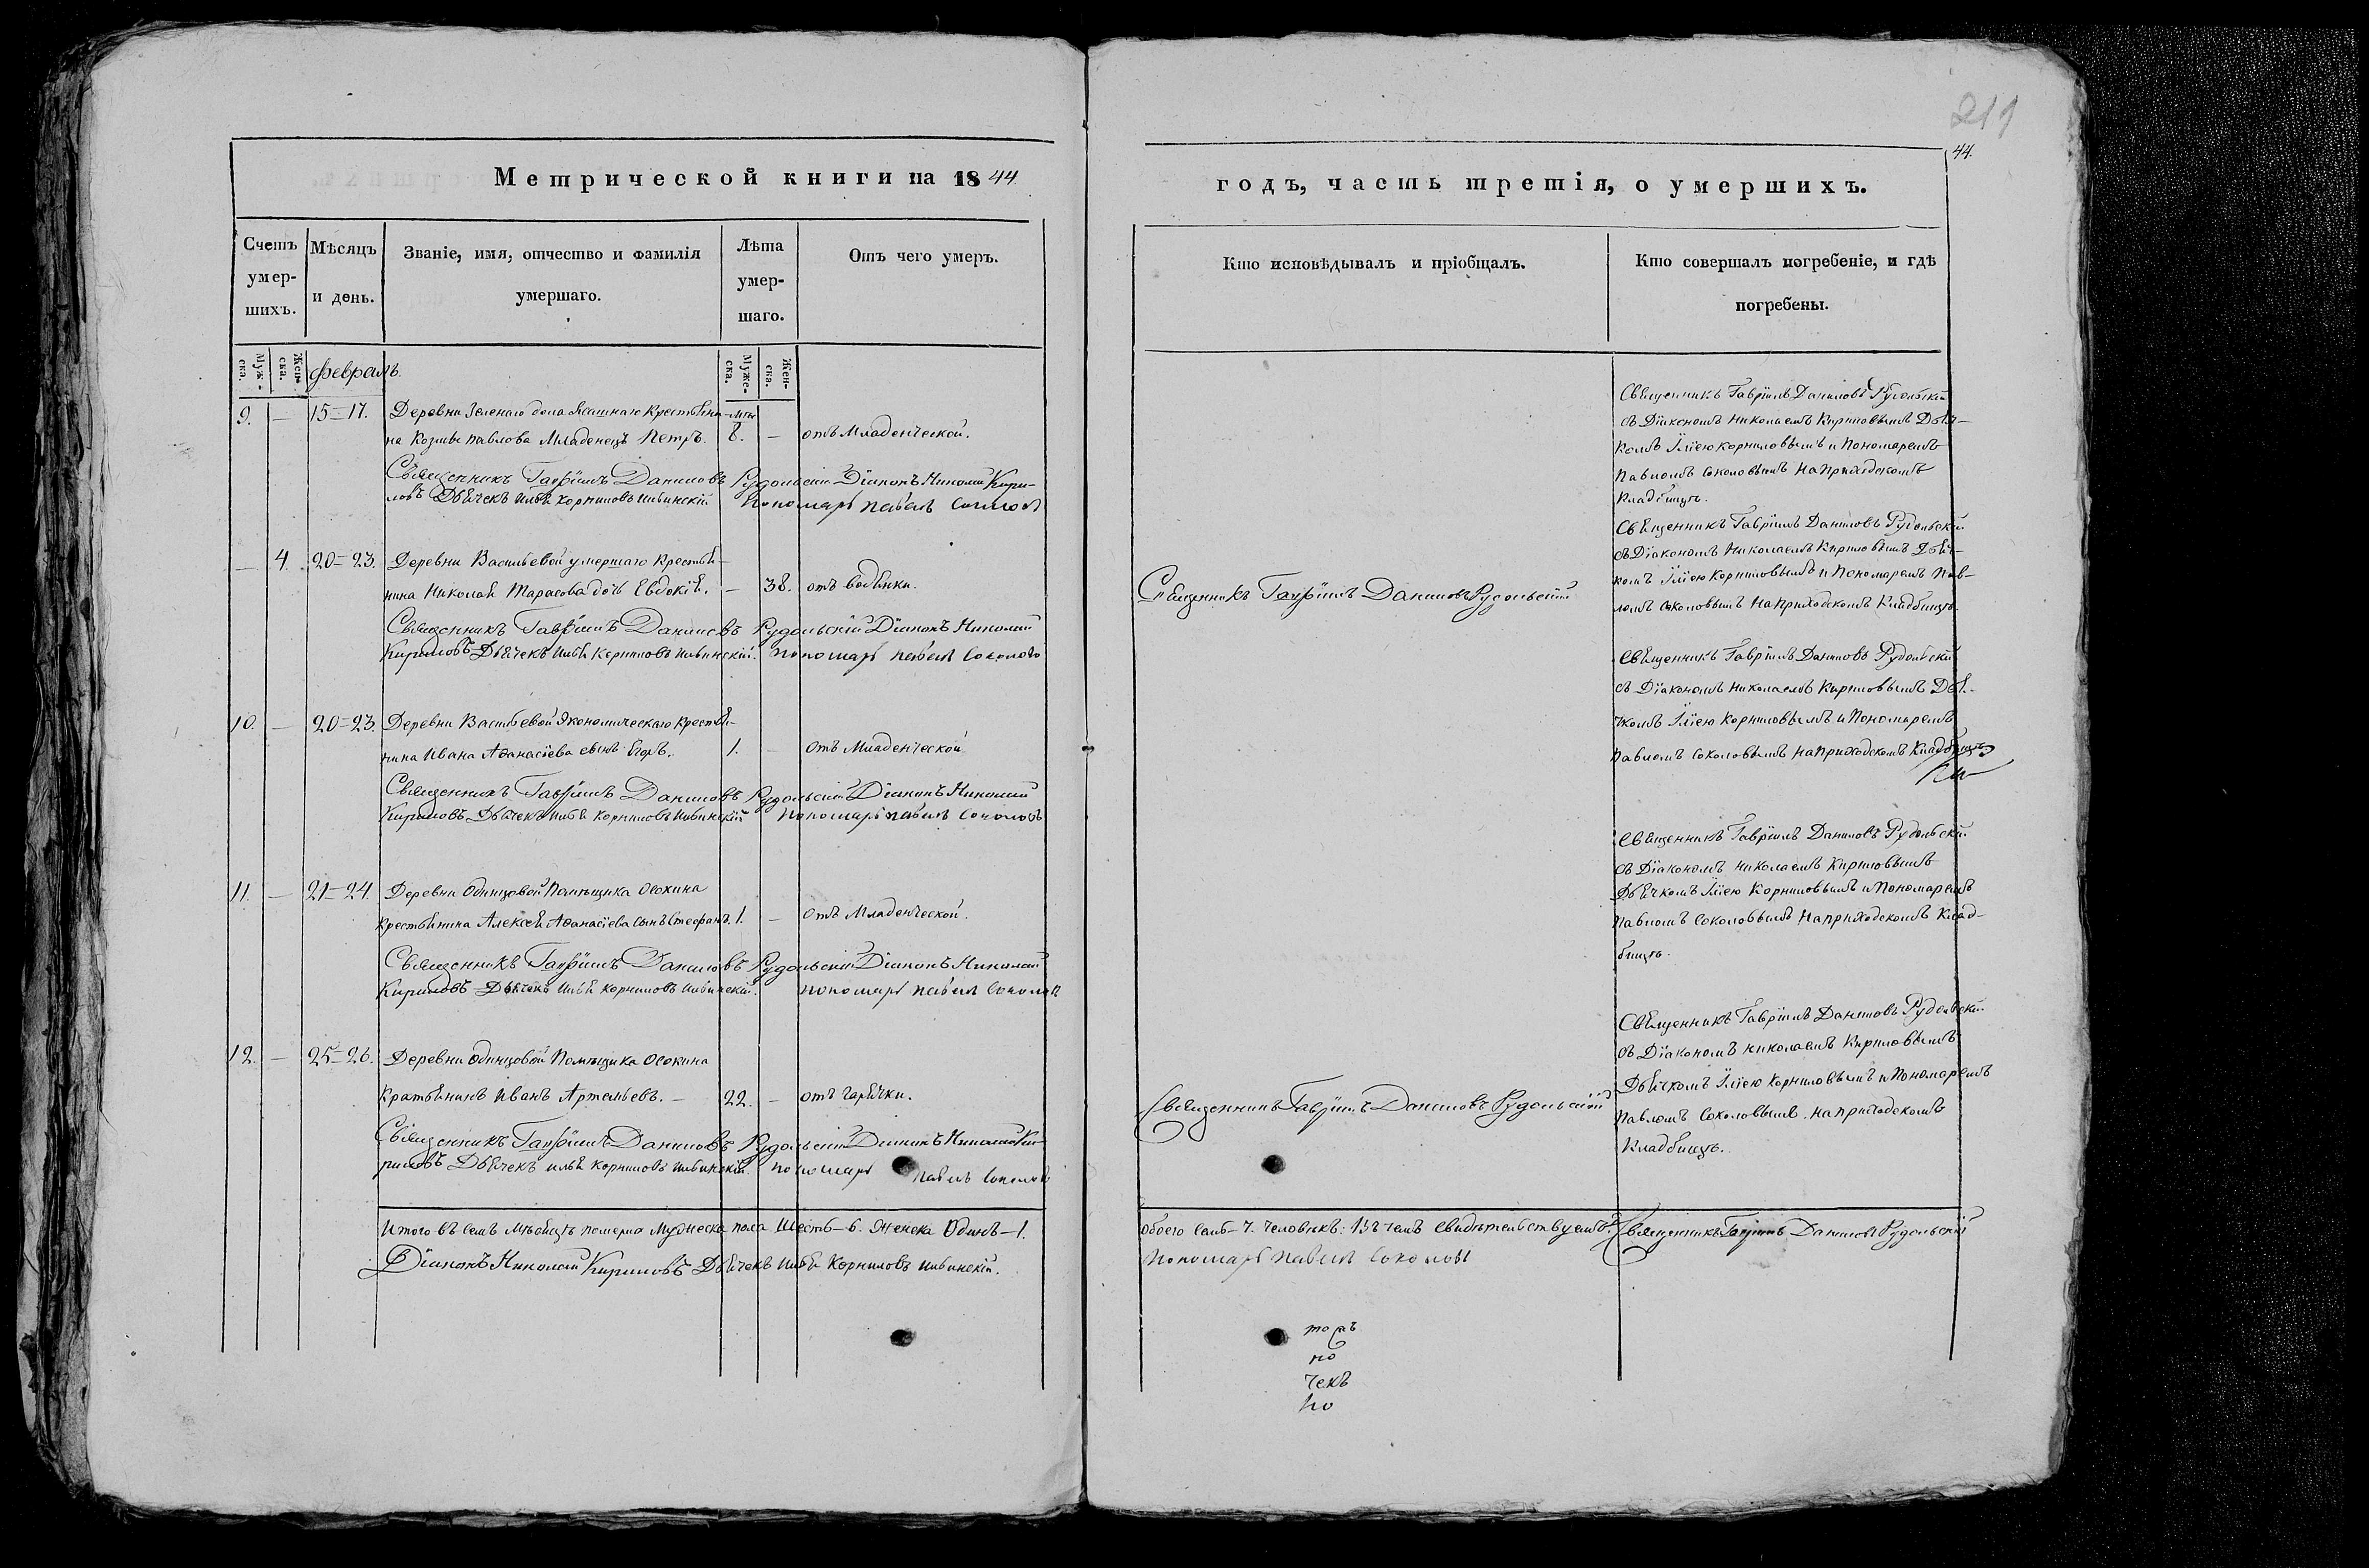 Метрической книги на 1844
Счетъ умер-шихъ.
Мѣсяцъ и день.
Званіе, имя, отчество и фамилія умершаго.
Лѣта умер-шаго.
Отъ чего умеръ.
Муж-ска.
Жен-ска.
Февраль.
Муже-ска.
Жен-ска.
9. — 15=17. Деревни Зеленаго дола Ясашнаго Крестьяни-
на Козмы Павлова Младенецъ Петръ. 8. — отъ Младенческой.
Священникъ Гавріилъ Даниловъ Рудольскій Діаконъ Николай Кири-
ловъ Дьячекъ Илья Корниловъ Пономарь Павелъ Соколовъ
— 4. 20=23. Деревни Васильевой умершаго Крестья-
нина Николая Тарасова дочь Евдокія. — 38. отъ водянки.
Священникъ Гавріилъ Даниловъ Рудольскій Діаконъ Николай
Кириловъ Дьячекъ Илья Корниловъ Пономарь Павелъ Соколовъ
10. — 20=23. Деревни Васильевой Экономическаго Крестья-
нина Ивана Аѳанасіева сынъ Егоръ. 1. — отъ Младенческой
Священникъ Гавріилъ Даниловъ Рудольскій Діаконъ Николай
Кириловъ Дьячекъ Илья Корниловъ Пономарь Павелъ Соколовъ
11. — 21=24. Деревни Одинцовой Помѣщика Осокина
Крестьянина Алексея Аѳанасіева сынъ Стефанъ. 1. — отъ Младенческой.
Священникъ Гавріилъ Даниловъ Рудольскій Діаконъ Николай
Кириловъ Дьячекъ Илья Корниловъ Пономарь Павелъ Соколовъ
12. — 25=26. Деревни Одинцовой Помѣщика Осокина
Иванъ Артемьевъ. — 22. — отъ горячки.
Священникъ Гавріилъ Даниловъ Рудольскій Діаконъ Николай Ки-
риловъ Дьячекъ Илья Корниловъ Пономарь Павелъ Соколовъ
Итого въ семъ Мѣсяцѣ померло Мужеска пола Шесть—6. Женска Одинъ—1.
Діаконъ Николай Кириловъ Дьячекъ Илья Корниловъ
211
44.
годъ, часть третія, о умершихъ.
Кто исповѣдывалъ и пріобщалъ.
Кто совершалъ погребеніе, и гдѣ погребены.
Священникъ Гавріилъ Даниловъ Рудольскій
съ Діакономъ Николаемъ Кириловымъ Дьяч-
комъ Иліею Корниловымъ и Пономаремъ
Павломъ Соколовымъ на приходскомъ
Кладбищѣ.
Священникъ Гавріилъ Даниловъ Рудольскій
Священникъ Гавріилъ Даниловъ Рудольскій
съ Діакономъ Николаемъ Кириловымъ Дьяч-
комъ Иліею Корниловымъ и Пономаремъ Пав-
ломъ Соколовымъ на приходскомъ Кладбищѣ.
Священникъ Гавріилъ Даниловъ Рудольскій
съ Діакономъ Николаемъ Кириловымъ Дья-
чкомъ Иліею Корниловымъ и Пономаремъ
Павломъ Соколовымъ на приходскомъ Кладбищѣ
Священникъ Гавріилъ Даниловъ Рудольскій
съ Діакономъ Николаемъ Кириловымъ
Дьячкомъ Иліею Корниловымъ и Пономаремъ
Павломъ Соколовымъ на приходскомъ Клад-
бищѣ.
Священникъ Гавріилъ Даниловъ Рудольскій
Священникъ Гавріилъ Даниловъ Рудольскій
съ Діакономъ Николаемъ Кириловымъ
Дьячкомъ Иліею Корниловымъ и Пономаремъ
Павломъ Соколовымъ на приходскомъ
Кладбищѣ.
обоего семь—7. человѣкъ. Въ чемъ свидѣтельствуемъ. Священникъ Гавріилъ Даниловъ Рудольскій
Пономарь Павелъ Соколовъ
но
чекъ
по